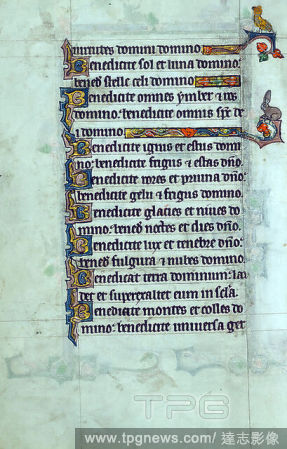 uirtutes domini domino.
Benedicite sol et luna domino:
bened stelle celi domino
Benedicite omnes ymber et ros
domino: benedicite omnes spc de
i domino
Benedicite ignis et estus domi
no: benedicite frigus et estas dno.
Benedicite rores et pruina dno:
benedicite gelu et frigus domino.
Benedicite glacies et niues do
mino: bened noctes et dies dno.
Benedicite lux et tenebre dno:
bened fulgura et nubes domino.
Benedicat terra dominum: lau
det et superexaltet eum in scla.
Benedicite montes et colles do
mino: benedicite uniuersa ger
TPG
www.tpgnews.com/達志影像